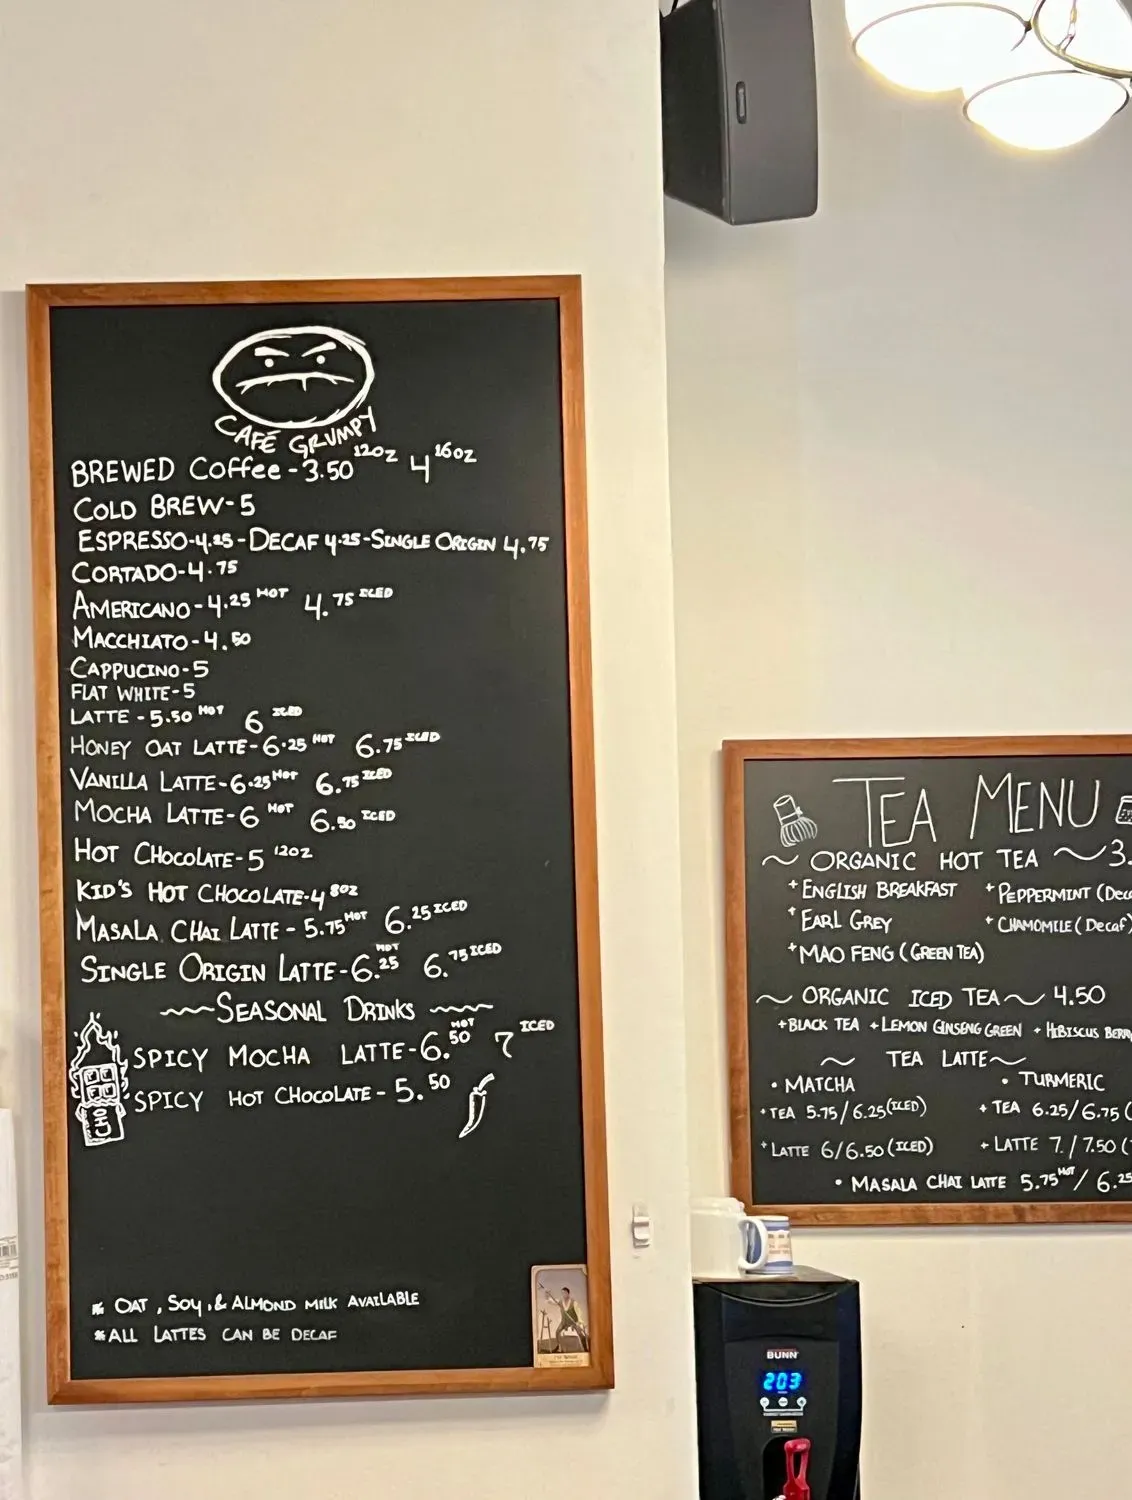 CAFÉ GRUMPY
BREWED Coffee - 3.50 12oz 4 16oz
COLD BREW - 5
ESPRESSO - 4.25 - DECAF 4.25 - SINGLE ORIGIN 4.75
CORTADO - 4.75
AMERICANO - 4.25 HOT 4.75 ICED
MACCHIATO - 4.50
CAPPUCINO - 5
FLAT WHITE - 5
LATTE - 5.50 HOT 6 ICED
HONEY OAT LATTE - 6.25 HOT 6.75 ICED
VANILLA LATTE - 6.25 HOT 6.75 ICED
MOCHA LATTE - 6 HOT 6.50 ICED
HOT CHOCOLATE - 5 12oz
KID'S HOT CHOCOLATE - 4 8oz
MASALA CHAI LATTE - 5.75 HOT 6.25 ICED
SINGLE ORIGIN LATTE - 6.25 HOT 6.75 ICED
~ SEASONAL DRINKS ~
SPICY MOCHA LATTE - 6.50 HOT 7 ICED
SPICY HOT CHOCOLATE - 5.50
CHO
* OAT, SOY, & ALMOND MILK AVAILABLE
* ALL LATTES CAN BE DECAF
TEA MENU
~ ORGANIC HOT TEA ~ 3.
+ ENGLISH BREAKFAST + PEPPERMINT (Dec
+ EARL GREY + CHAMOMILE (Decaf)
+ MAO FENG (GREEN TEA)
~ ORGANIC ICED TEA ~ 4.50
+ BLACK TEA + LEMON GINSENG GREEN + HIBISCUS BERRY
~ TEA LATTE ~
• MATCHA • TURMERIC
+ TEA 5.75/6.25 (ICED) + TEA 6.25/6.75 (
+ LATTE 6/6.50 (ICED) + LATTE 7./7.50 (
• MASALA CHAI LATTE 5.75 HOT / 6.25
BUNN
203